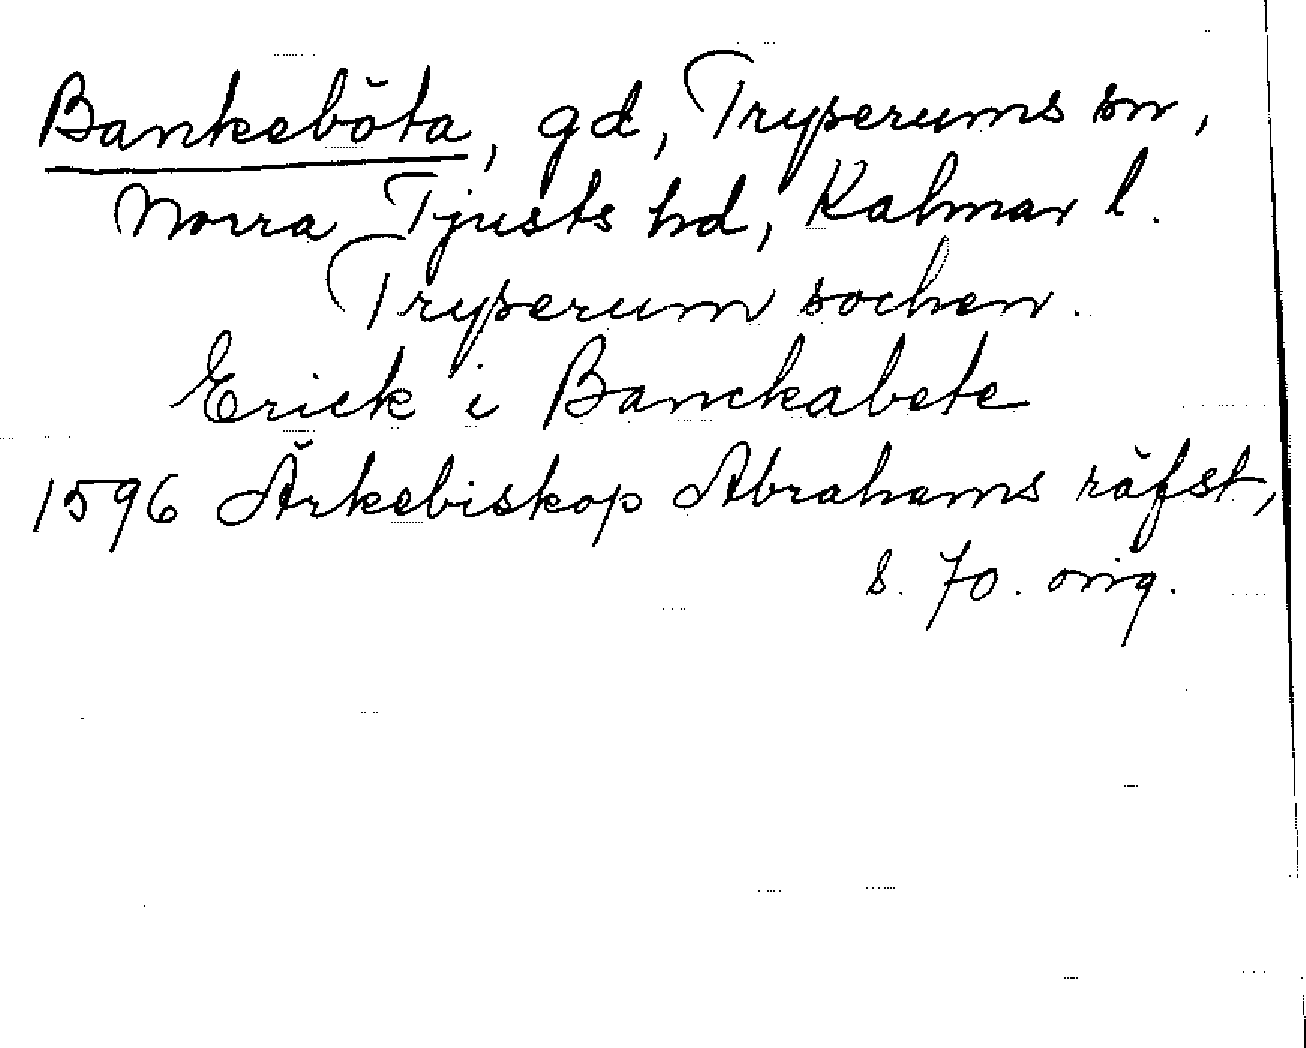 Bankeböta, gd, Tryserums sn,
Norra Tjusts hd, Kalmar l.
Tryserum sochen.
Erick i Banckabete
1596 Ärkebiskop Abrahams räfst,
s. 70. orig.